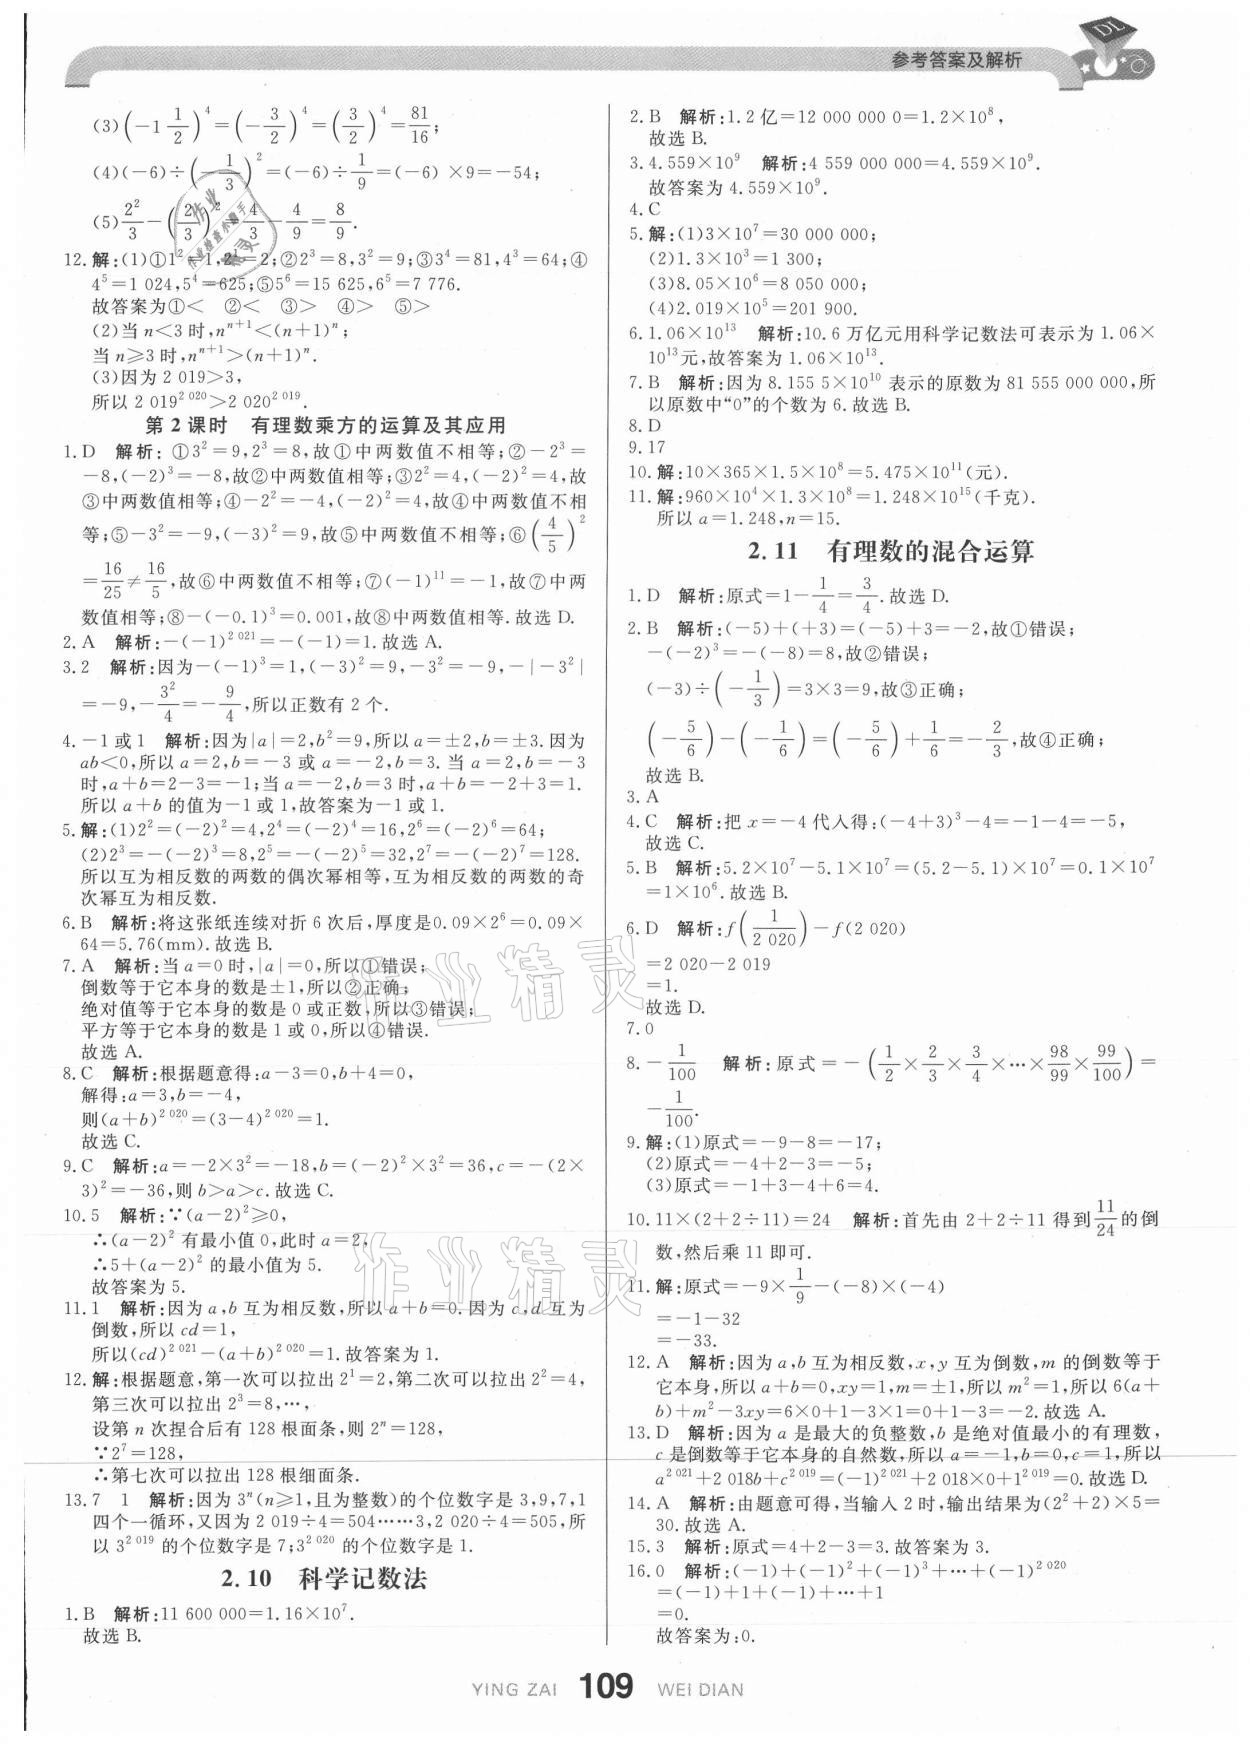 参考答案及解析
DL
(3)(-1 1/2)^4=(-3/2)^4=(3/2)^4=81/16;
(4)(-6)÷(-1/3)^2=(-6)÷1/9=(-6)×9=-54;
(5)2^2/3-(2/3)^2=4/3-4/9=8/9.
12.解:(1)①1^2=1,2^1=2;②2^3=8,3^2=9;③3^4=81,4^3=64;④
4^5=1 024,5^4=625;⑤5^6=15 625,6^5=7 776.
故答案为①< ②< ③> ④> ⑤>
(2)当n<3时,n^{n+1}<(n+1)^n;
当n≥3时,n^{n+1}>(n+1)^n.
(3)因为2 019>3,
所以2 019^{2 020}>2 020^{2 019}.
第2课时 有理数乘方的运算及其应用
1.D 解析:①3^2=9,2^3=8,故①中两数值不相等;②-2^3=
-8,(-2)^3=-8,故②中两数值相等;③2^2=4,(-2)^2=4,故
③中两数值相等;④-2^2=-4,(-2)^2=4,故④中两数值不相
等;⑤-3^2=-9,(-3)^2=9,故⑤中两数值不相等;⑥(4/5)^2
=16/25≠16/5,故⑥中两数值不相等;⑦(-1)^{11}=-1,故⑦中两
数值相等;⑧-(-0.1)^3=0.001,故⑧中两数值相等.故选D.
2.A 解析:-(-1)^{2 021}=-(-1)=1.故选A.
3.2 解析:因为-(-1)^3=1,(-3)^2=9,-3^2=-9,-|-3^2|
=-9,-3^2/4=-9/4,所以正数有2个.
4.-1或1 解析:因为|a|=2,b^2=9,所以a=±2,b=±3.因为
ab<0,所以a=2,b=-3或a=-2,b=3.当a=2,b=-3
时,a+b=2-3=-1;当a=-2,b=3时,a+b=-2+3=1.
所以a+b的值为-1或1,故答案为-1或1.
5.解:(1)2^2=(-2)^2=4,2^4=(-2)^4=16,2^6=(-2)^6=64;
(2)2^3=-(-2)^3=8,2^5=-(-2)^5=32,2^7=-(-2)^7=128.
所以互为相反数的两数的偶次幂相等,互为相反数的两数的奇
次幂互为相反数.
6.B 解析:将这张纸连续对折6次后,厚度是0.09×2^6=0.09×
64=5.76(mm).故选B.
7.A 解析:当a=0时,|a|=0,所以①错误;
倒数等于它本身的数是±1,所以②正确;
绝对值等于它本身的数是0或正数,所以③错误;
平方等于它本身的数是1或0,所以④错误.
故选A.
8.C 解析:根据题意得:a-3=0,b+4=0,
解得:a=3,b=-4,
则(a+b)^{2 020}=(3-4)^{2 020}=1.
故选C.
9.C 解析:a=-2×3^2=-18,b=(-2)^2×3^2=36,c=-(2×
3)^2=-36,则b>a>c.故选C.
10.5 解析:∵(a-2)^2≥0,
∴(a-2)^2有最小值0,此时a=2,
∴5+(a-2)^2的最小值为5.
故答案为5.
11.1 解析:因为a,b互为相反数,所以a+b=0.因为c,d互为
倒数,所以cd=1,
所以(cd)^{2 021}-(a+b)^{2 020}=1.故答案为1.
12.解:根据题意,第一次可以拉出2^1=2,第二次可以拉出2^2=4,
第三次可以拉出2^3=8,…,
设第n次捏合后有128根面条,则2^n=128,
∵2^7=128,
∴第七次可以拉出128根细面条.
13.7 1 解析:因为3^n(n≥1,且为整数)的个位数字是3,9,7,1
四个一循环,又因为2 019÷4=504……3,2 020÷4=505,所
以3^{2 019}的个位数字是7;3^{2 020}的个位数字是1.
2.10 科学记数法
1.B 解析:11 600 000=1.16×10^7.
故选B.
2.B 解析:1.2亿=12 000 000 0=1.2×10^8,
故选B.
3.4.559×10^9 解析:4 559 000 000=4.559×10^9.
故答案为4.559×10^9.
4.C
5.解:(1)3×10^7=30 000 000;
(2)1.3×10^3=1 300;
(3)8.05×10^6=8 050 000;
(4)2.019×10^5=201 900.
6.1.06×10^{13} 解析:10.6万亿元用科学记数法可表示为1.06×
10^{13}元,故答案为1.06×10^{13}.
7.B 解析:因为8.155 5×10^{10}表示的原数为81 555 000 000,所
以原数中“0”的个数为6.故选B.
8.D
9.17
10.解:10×365×1.5×10^8=5.475×10^{11}(元).
11.解:960×10^4×1.3×10^8=1.248×10^{15}(千克).
所以a=1.248,n=15.
2.11 有理数的混合运算
1.D 解析:原式=1-1/4=3/4.故选D.
2.B 解析:(-5)+(+3)=(-5)+3=-2,故①错误;
-(-2)^3=-(-8)=8,故②错误;
(-3)÷(-1/3)=3×3=9,故③正确;
(-5/6)-(-1/6)=(-5/6)+1/6=-2/3,故④正确;
故选B.
3.A
4.C 解析:把x=-4代入得:(-4+3)^3-4=-1-4=-5,
故选C.
5.B 解析:5.2×10^7-5.1×10^7=(5.2-5.1)×10^7=0.1×10^7
=1×10^6.故选B.
6.D 解析:f(1/2 020)-f(2 020)
=2 020-2 019
=1.
故选D.
7.0
8.-1/100 解析:原式=-(1/2×2/3×3/4×…×98/99×99/100)=
-1/100.
9.解:(1)原式=-9-8=-17;
(2)原式=-4+2-3=-5;
(3)原式=-1+3-4+6=4.
10.11×(2+2÷11)=24 解析:首先由2+2÷11得到11/24的倒
数,然后乘11即可.
11.解:原式=-9×1/9-(-8)×(-4)
=-1-32
=-33.
12.A 解析:因为a,b互为相反数,x,y互为倒数,m的倒数等于
它本身,所以a+b=0,xy=1,m=±1,所以m^2=1,所以6(a+
b)+m^2-3xy=6×0+1-3×1=0+1-3=-2.故选A.
13.D 解析:因为a是最大的负整数,b是绝对值最小的有理数,
c是倒数等于它本身的自然数,所以a=-1,b=0,c=1,所以
a^{2 021}+2 018b+c^{2 019}=(-1)^{2 021}+2 018×0+1^{2 019}=0.故选D.
14.A 解析:由题意可得,当输入2时,输出结果为(2^2+2)×5=
30.故选A.
15.3 解析:原式=4+2-3=3.故答案为3.
16.0 解析:(-1)+(-1)^2+(-1)^3+…+(-1)^{2 020}
=(-1)+1+(-1)+…+1
=0.
故答案为:0.
作业精灵
作业精灵
YING ZAI 109 WEI DIAN